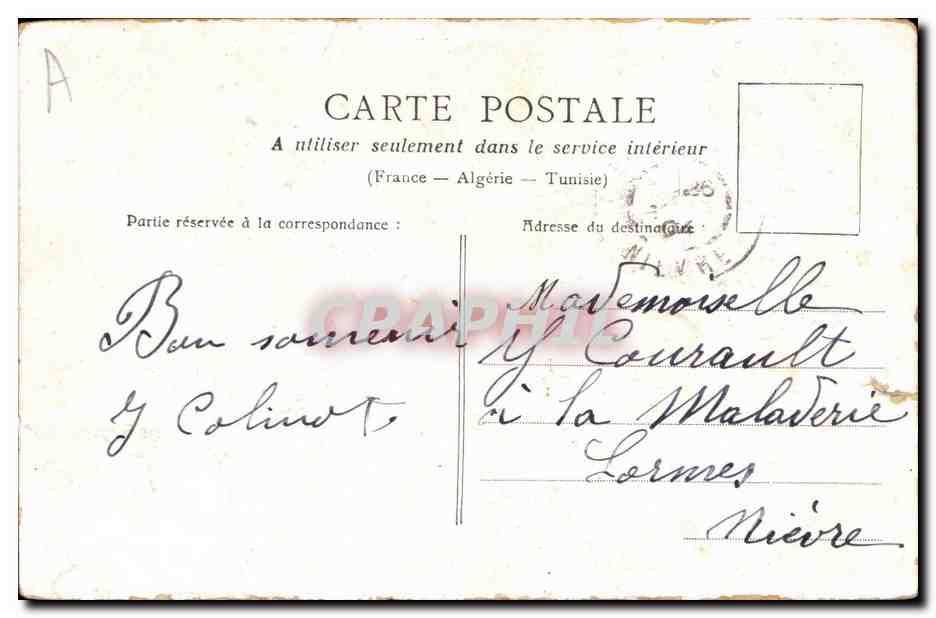 A
CARTE POSTALE
A utiliser seulement dans le service intérieur
(France — Algérie — Tunisie)
Partie réservée à la correspondance :
Adresse du destinataire :
NIEVRE
Bon souvenir
Y Colinot
CRAPHIL
Mademoiselle
Y Courault
à la Maladerie
Lormes
Nièvre